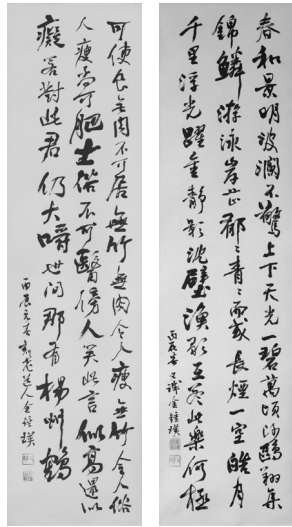 春和景明波瀾不驚上下天光一碧萬頃沙鷗翔集
錦鱗游泳岸芷郁々青々而或長煙一空皓月
千里浮光躍金靜影沈璧漁歌互答此樂何極
丙辰春
可使食無肉不可居無竹無肉令人瘦無竹令人俗
人瘦尚可肥士俗不可醫傍人笑此言似高還似
癡若對此君仍大嚼世間那有楊州鶴
丙辰元春